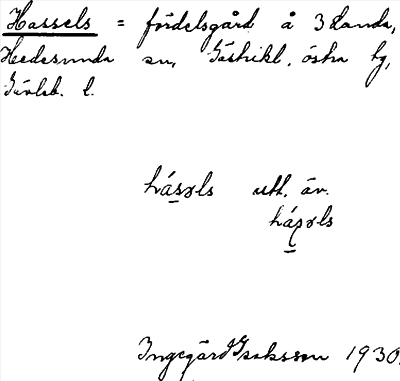 Hassels = fördelsgård å 3 Landa,
Hedesunda sn, Gästrikl. östra tg,
Gävleb. l.
hásəls utt. äv.
hásəls
Ingegärd Isaksson 1930.